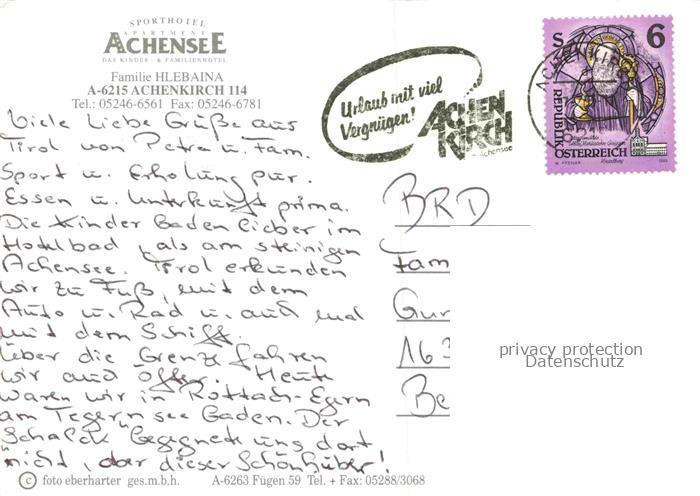 SPORTHOTEL
APARTMENT
ACHENSEE
DAS KINDER- & FAMILIENHOTEL
Familie HLEBAINA
A-6215 ACHENKIRCH 114
Tel.: 05246-6561 Fax: 05246-6781
Viele liebe Grüße aus
Tirol von Petra u. Fam.
Sport u. Erholung pur.
Essen u. Unterkunft prima.
Die Kinder baden lieber im
Hotelbad, als am steinigen
Achensee. Tirol erkunden
wir zu Fuß, mit dem
Auto u. Rad u. auch mal
mit dem Schiff.
Über die Grenze fahren
wir auch öfter. Heute
waren wir in Rottach-Egern
am Tegernsee baden. Der
"Schalck" begegnete uns dort
nicht, aber dieser Schönhuber!
c foto eberharter ges.m.b.h. A-6263 Fügen 59 Tel. + Fax: 05288/3068
Urlaub mit viel
Vergnügen!
ACHEN
KIRCH
Achensee
S 6
REPUBLIK
ÖSTERREICH
BRD
Fam
Gur
163
Be
privacy protection
Datenschutz